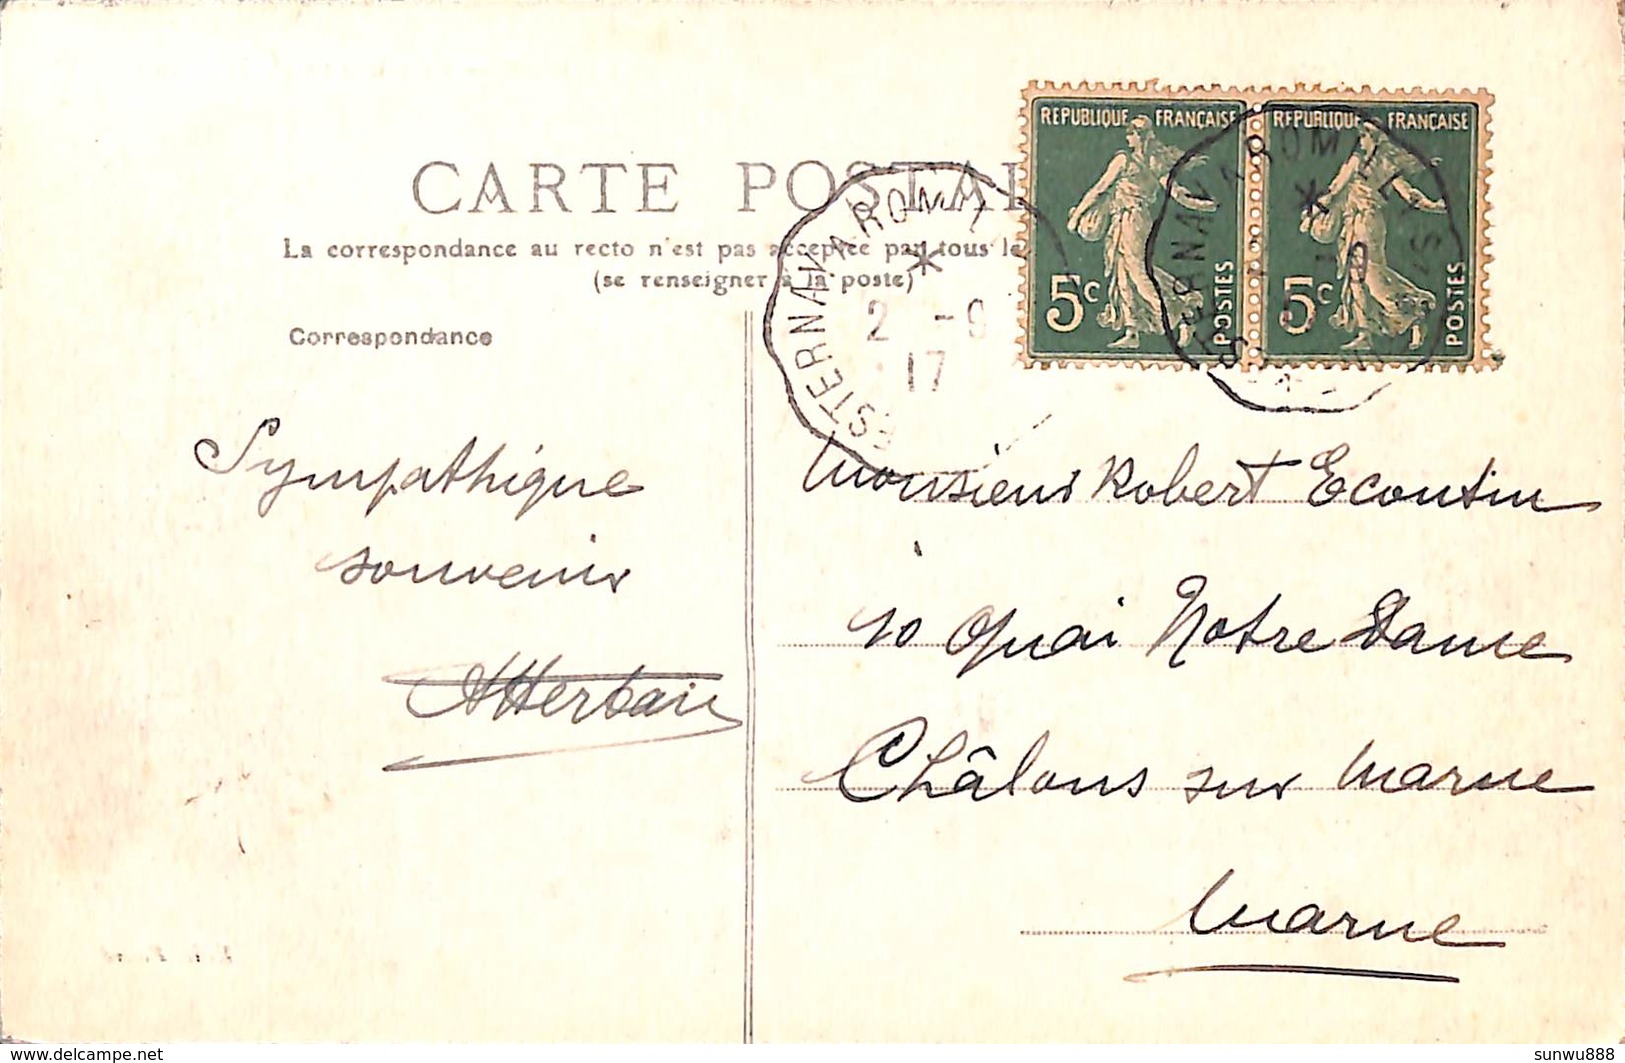 CARTE POSTAL
La correspondance au recto n'est pas acceptée par tous le
(se renseigner à la poste)
Correspondance
REPUBLIQUE FRANÇAISE
5c
POSTES
REPUBLIQUE FRANÇAISE
5c
POSTES
ESTERNAY A ROMIL
*
2 -9
17
ESTERNAY A ROMILLY
*
Sympathique
souvenir
Monsieur Robert Econtin
10 Quai Notre Dame
Châlons sur Marne
Marne
www.delcampe.net
sunwu888